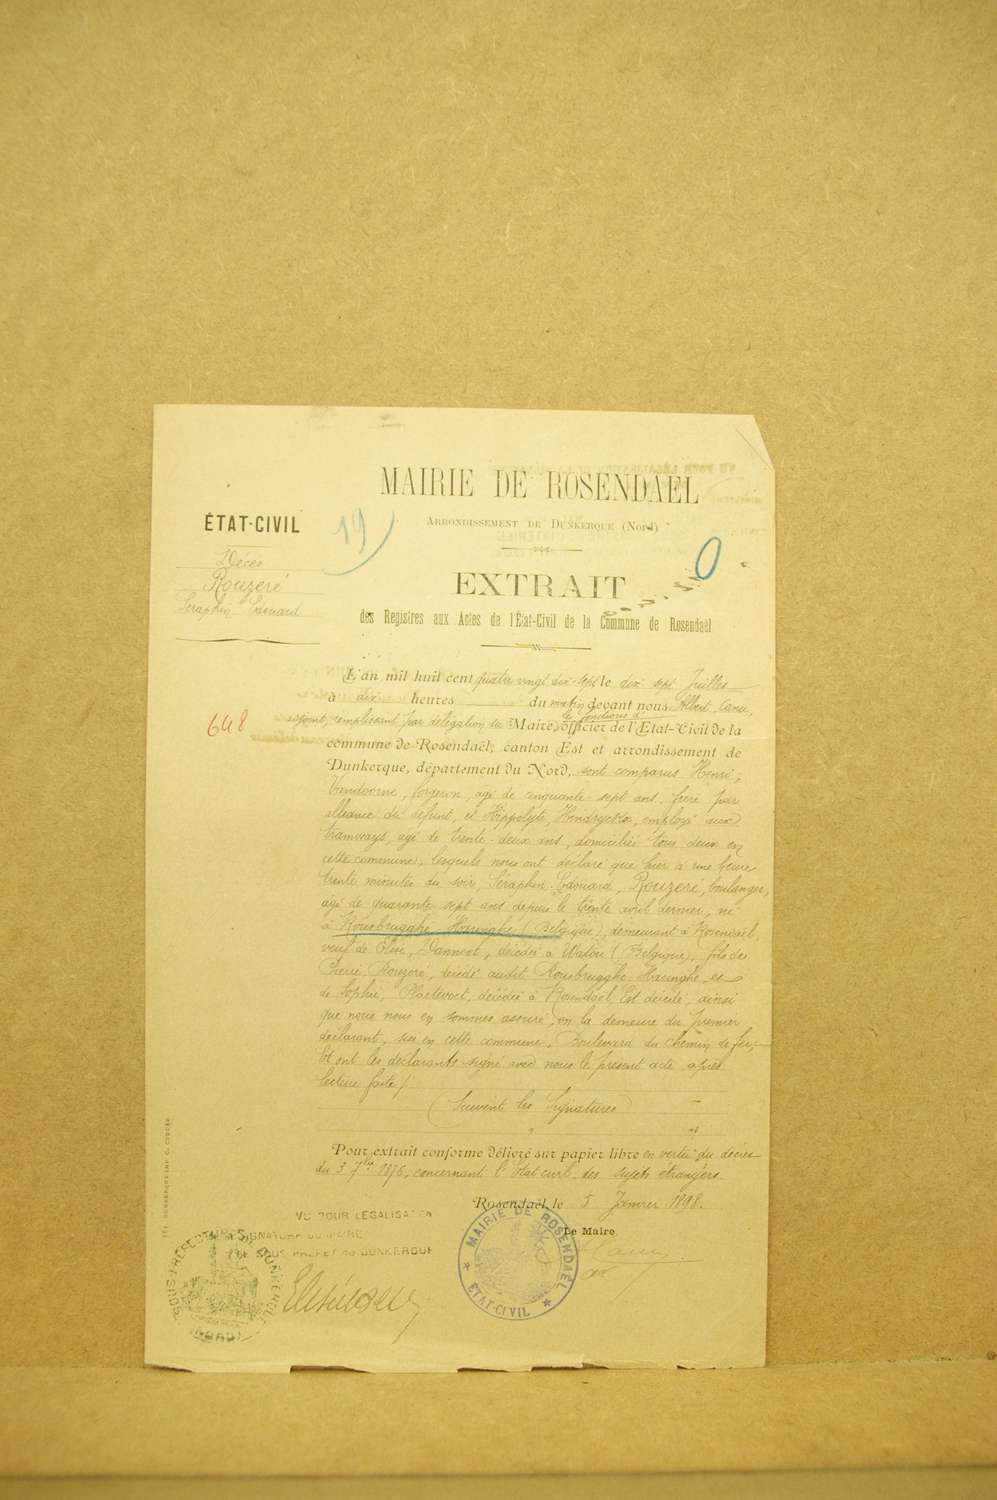 MAIRIE DE ROSENDAEL
ARRONDISSEMENT DE DUNKERQUE (Nord)
ÉTAT-CIVIL
19
Décès
Rouzeré
Séraphin Edouard
EXTRAIT
des Registres aux Actes de l'État-Civil de la Commune de Rosendaël
L'an mil huit cent quatre vingt dix-sept le dix sept Juillet
à dix heures du matin devant nous Albert
648
adjoint, remplissant par délégation les fonctions de Maire, officier de l'Etat-Civil de la
commune de Rosendaël, canton Est et arrondissement de
Dunkerque, département du Nord, sont comparus Henri,
Vandoorne, forgeron, agé de cinquante-sept ans, frère par
alliance du défunt, et Hippolyte, Hendryckx, employé aux
tramways, agé de trente-deux ans, domiciliés tous deux en
cette commune, lesquels nous ont déclaré que hier à une heure
trente minutes du soir, Séraphin Edouard, Rouzeré, boulanger,
agé de quarante sept ans depuis le trente avril dernier, né
à Rousbrugghe-Haringhe (Belgique), demeurant à Rosendaël,
veuf de décédée à Watou (Belgique), fils de
Pierre, Rouzeré, décédé audit Rousbrugghe-Haringhe, et
de Sophie, Plaetevoet, décédée à Rosendaël, Est décédé, ainsi
que nous nous en sommes assuré, en la demeure du premier
déclarant, sise en cette commune, Boulevard du Chemin de fer,
Et ont les déclarants signé avec nous le présent acte après
lecture faite /
(Suivent les Signatures)
Pour extrait conforme délivré sur papier libre en vertu du décret
du 3 7bre 1876, concernant l'état civil des sujets étrangers.
Rosendaël, le 5 Janvier 1898.
Le Maire
VU POUR LÉGALISATION
DE LA SIGNATURE DU MAIRE
LE SOUS-PRÉFET de DUNKERQUE
SOUS-PRÉFECTURE DE DUNKERQUE
(NORD)
MAIRIE DE ROSENDAËL
★ ÉTAT-CIVIL ★